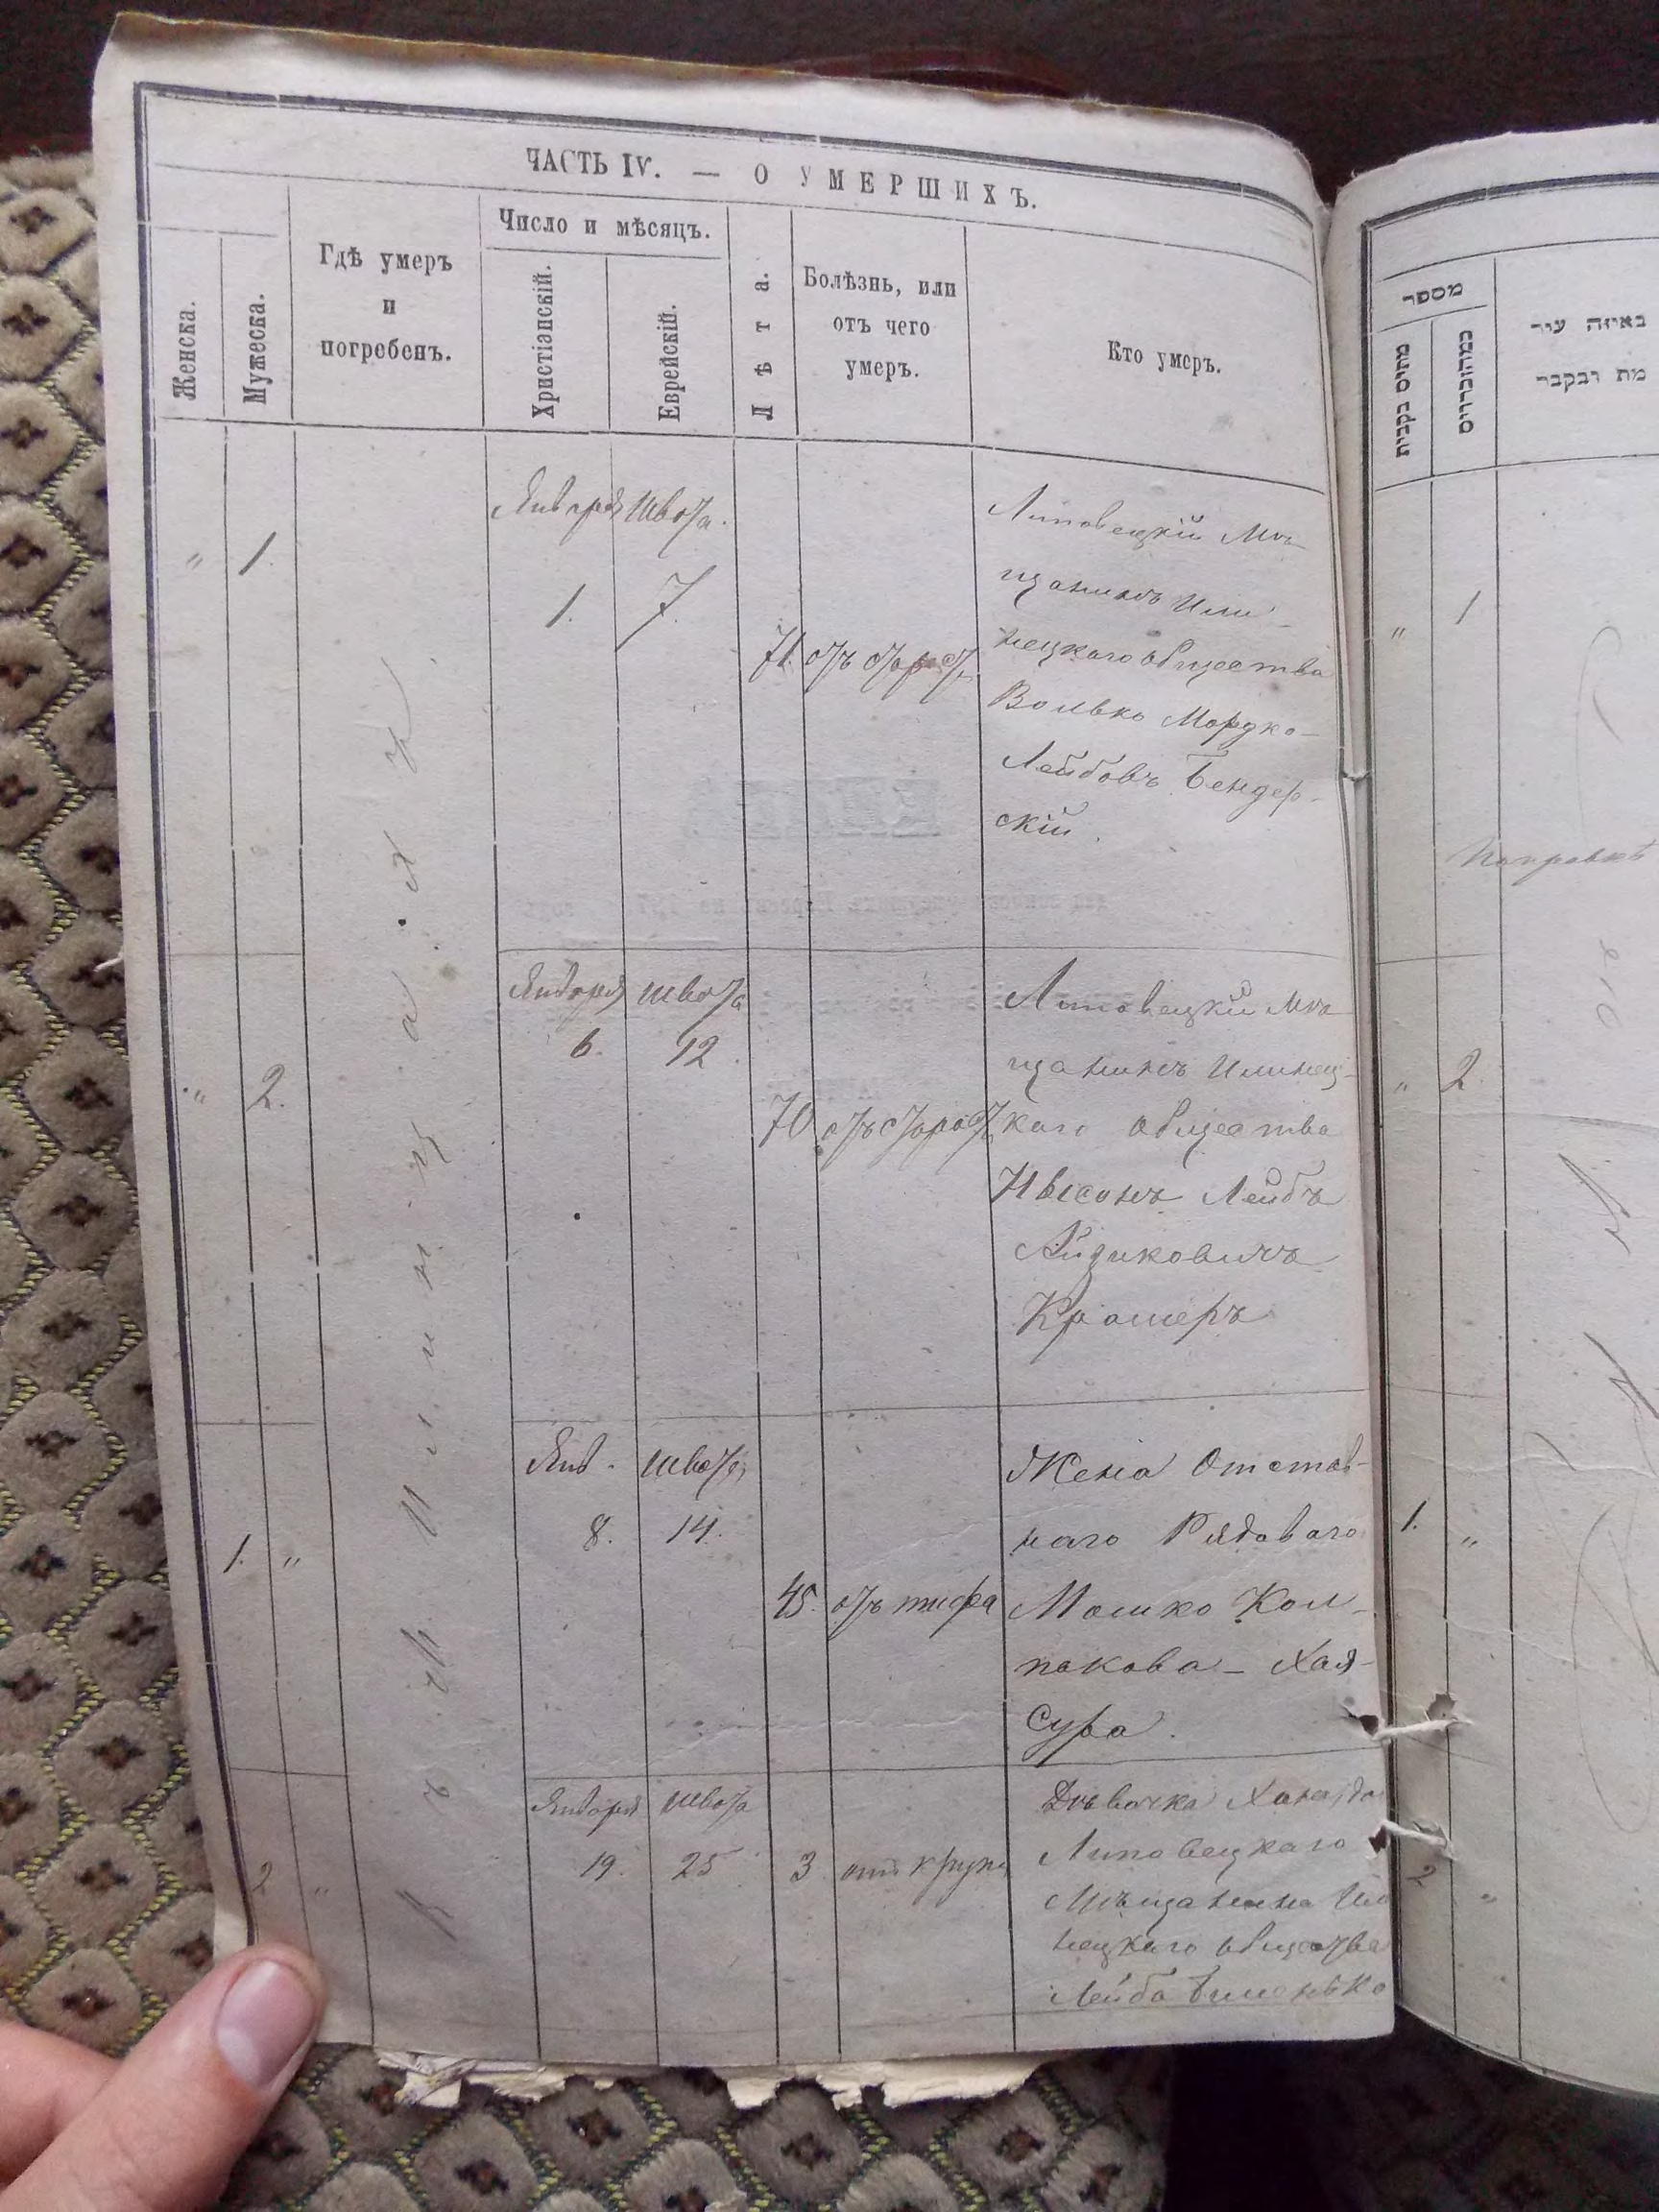 ЧАСТЬ IV. — О УМЕРШИХЪ.
Женска.
Мужеска.
Гдѣ умеръ
и
погребенъ.
Число и мѣсяцъ.
Христіанскій.
Еврейскій.
Лѣта.
Болѣзнь, или
отъ чего
умеръ.
Кто умеръ.
Въ м. Илинцахъ
„ 1.
Января Швота.
1. 7.
71. отъ старост
Липовецкій Мѣ
щанинъ Или-
нецкаго общества
Волько Мордко-
Лейбовъ Бендер-
скій.
„ 2.
Января Швота
6. 12.
70 отъ старост
Липовецкій Мѣ
щанинъ Илинец-
каго общества
Лейбъ
Айзиковичъ
Крамеръ
1. „
Янв. Швота
8. 14.
45. отъ тифа
Жена Отстав-
наго Рядоваго
Мошко Кол-
пакова - Хая-
Сура.
2 „
Января Швота
19. 25 3
Дѣвочка
Липовецкаго
Мѣщанина Или
нецкаго общества
Лейба
מספר
באיזה עיר
מת ונקבר
„ 1
„ 2
1. „
2 „